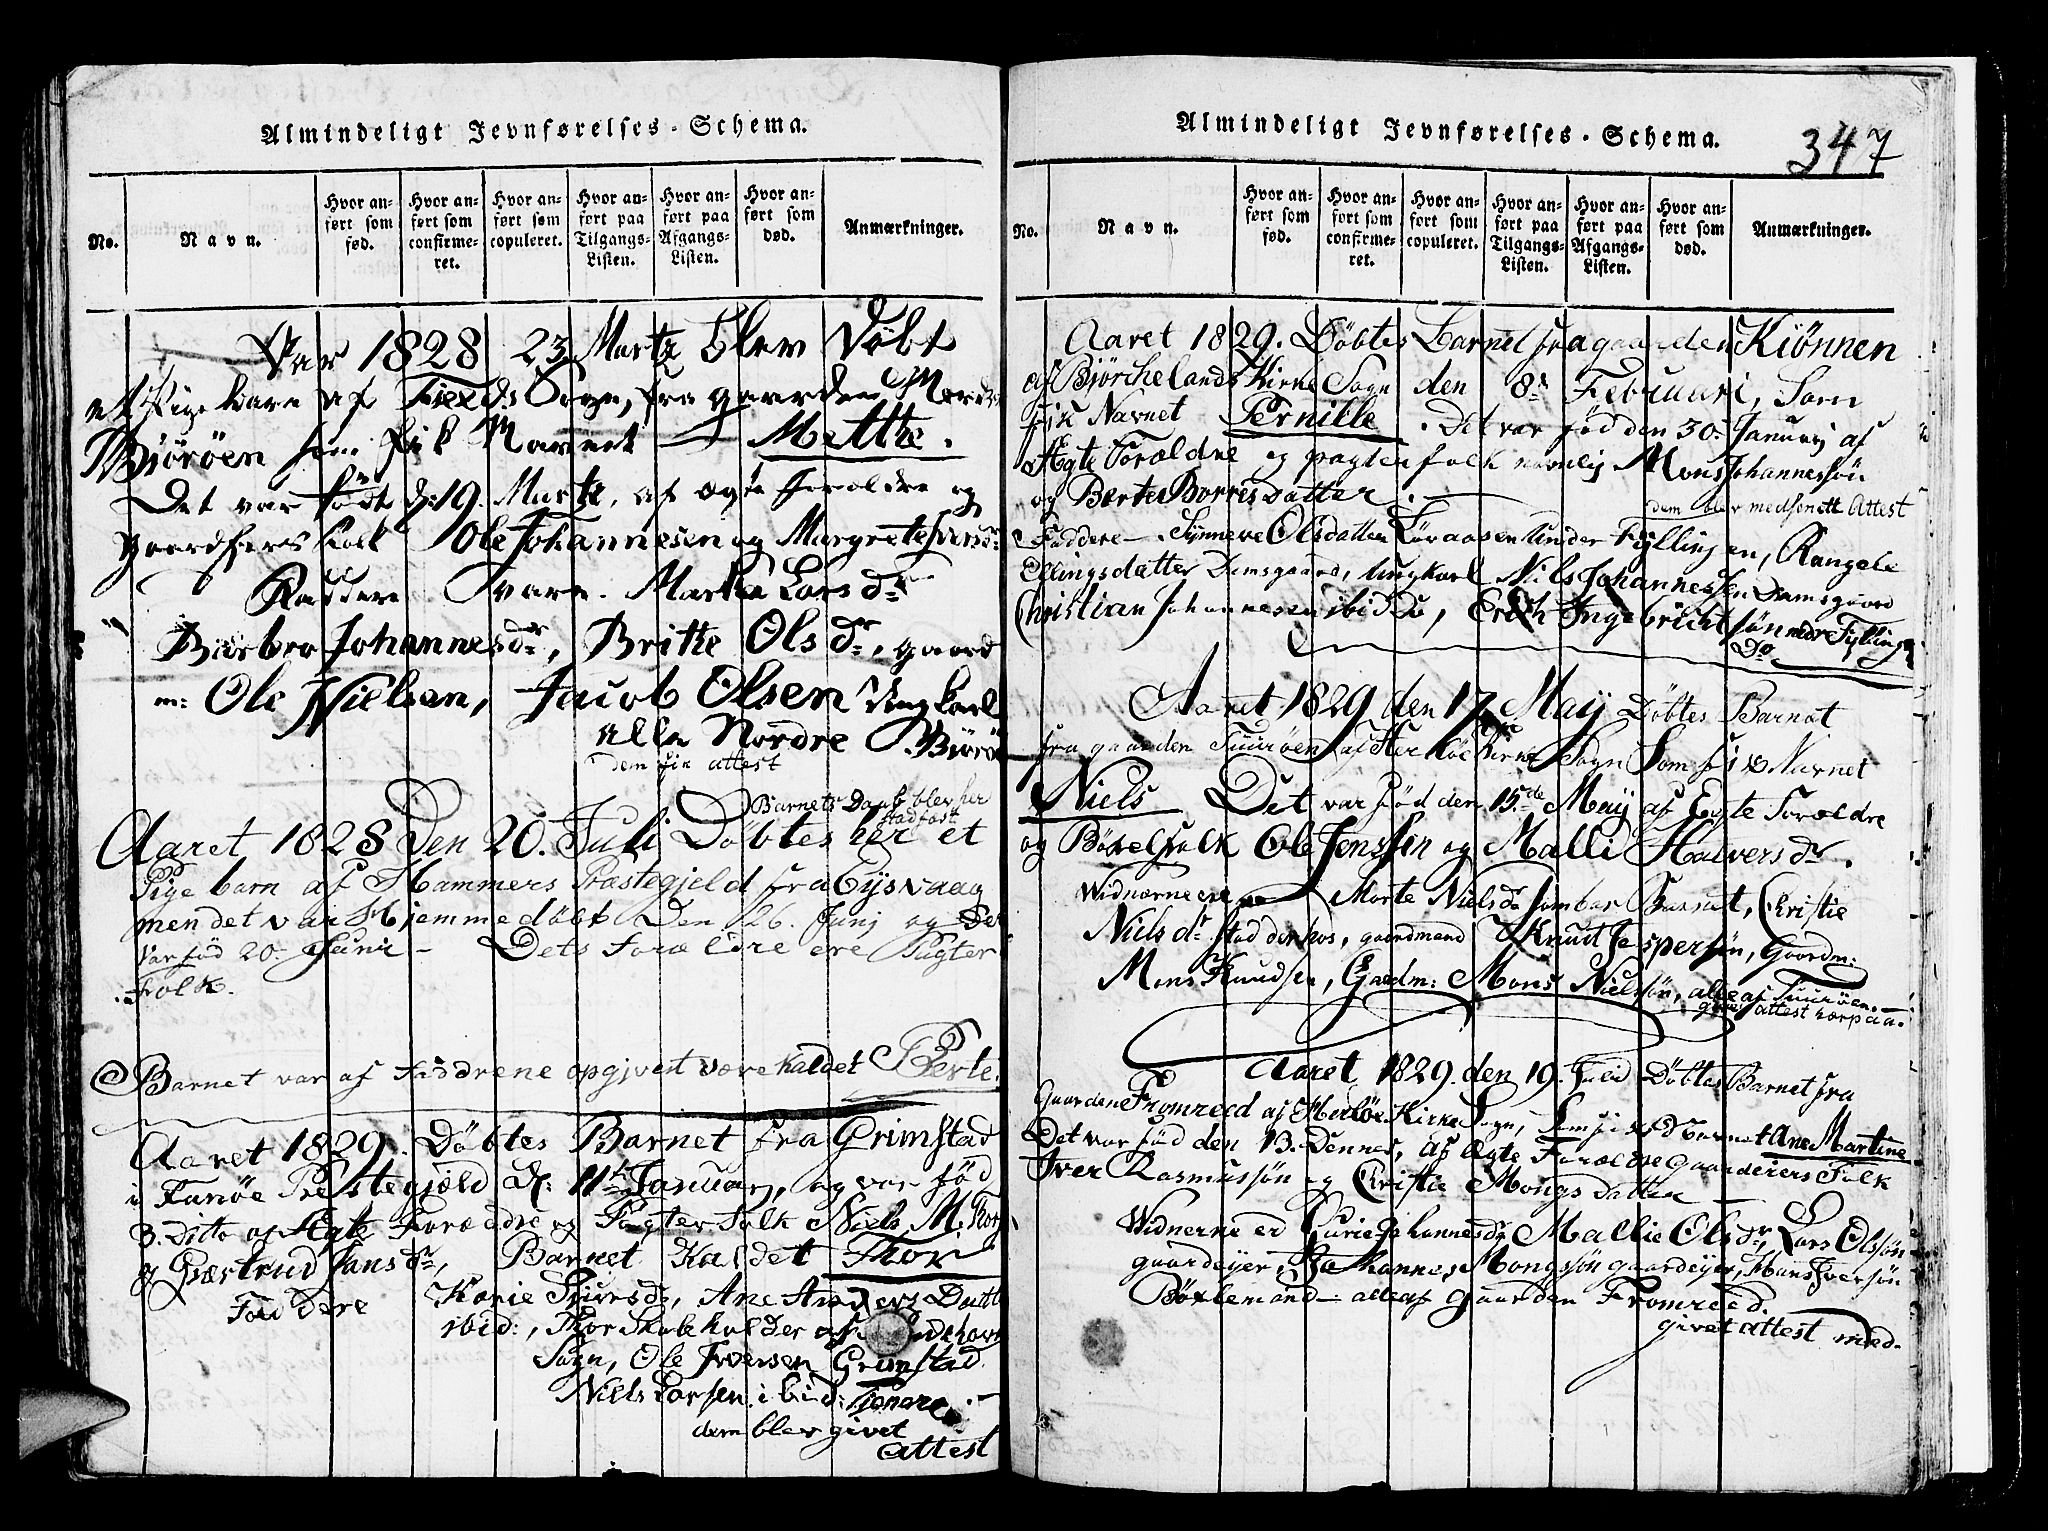 Almindeligt Jevnførelses-Schema.
No.
Navn.
Hvor anført som fød.
Hvor anført som confirmeret.
Hvor anført som copuleret.
Hvor anført paa Tilgangs-Listen.
Hvor anført paa Afgangs-Listen.
Hvor anført som død.
Anmærkninger.
Aar 1828 23 Martz blev Døbt
et Pige barn af Sogn, fra gaarden
Biørøen som fik Navnet Metthe.
Det var født d: 19. Martz, af ægte foreldre og
Folk Ole Johannesen og Margrete
Faddere vare. Marthe Larsdr
Barbro Johannesdr, Brithe Olsdr, gaard
m: Ole Nielsen, Jacob Olsen Ungkarl
alle Nordre Biørø
dem fik attest
Barnets Daab blev her
stadfæst
Aaret 1828 Den 20. Juli Døbtes her et
Pige barn af Hammers Præstegjeld fra Eysvaag
men det var Hjemmedøbt Den 26. Junj og Det
var fød 20. Juni - Dets Forældre ere Pagter
Folk.
Barnet var af Faddrene opgjvet være kaldet Berte.
Aaret 1829. Døbtes Barnet fra Grimstad
i Fanøe Prestegjæld d: 11te Januar, og var fød
3. Ditto af Ægte Forældre og Pagter Folk Niels M.
og Giertrud Jansdr, Barnet Kaldet Thor
Faddere Karie Siursdr, Ane Anders Datte
ibid:, Thor Skoleholder af
Sogn, Ole Iversen Grimstad.
Niels Larsen ibid: Tjenere.
dem blev givet
attest
Almindeligt Jevnførelses-Schema.
347
No.
Navn.
Hvor anført som fød.
Hvor anført som confirmeret.
Hvor anført som copuleret.
Hvor anført paa Tilgangs-Listen.
Hvor anført paa Afgangs-Listen.
Hvor anført som død.
Anmærkninger.
Aaret 1829. Døbtes Barnet fra gaarden Kiønnen
af Bjørchelands Kirke Sogn den 8de Februari, Som
fik Navnet Pernille. Det var fød den 30. Januarj af
Ægte Forældre og pagterfolk navnlig Mons Johannessøn
og Berte Borresdatter.
dem blev medsent Attest
Faddere - Synneve Olsdatter Løvaasen under Fyllingen, Rangele
Ellingsdatter Damsgaard, Ungkarl Niels Johannessen Damsgaard
Christian Johannesen ibid Do, Erich Ingebrichtsøn nedre Fyllingen
Do
Aaret 1829 den 17 May Døbtes Barnet
fra gaarden Tuurøen af Herløe Kirke Sogn Som fik Navnet
Niels Det var fød den 15de May af Egte Forældre
og Bøxelfolk Ole Jenssen og Malli Halversdr.
Widnerne ere Marte Nielsdr frembar Barnet, Christie
Nielsdr stod derhos, gaardmand Knud Jespersøn, Gaardm:
Mons Knudsen, Gaardm: Mons Nielssøn, alle af Tuurøen.
givet attest herpaa.
Aaret 1829. den 19. Juli Døbtes Barnet fra
Gaarden Fromreed af Herløe Kirke Sogn, Som fik Navnet Ane Martine
Det var fød den 13. Dennes, af Ægte Forældre gaardeiers Folk
Iver Rasmussøn og Christie Mongsdatter
Widnerne er Gurie Johannesdr Mallie Olsdr, Lars Olssøn
gaardeyer, Johannes Mongssøn gaardeyer, Hans Iversøn
Bøxlemand - alle af gaarden Fromreed.
givet attest med.